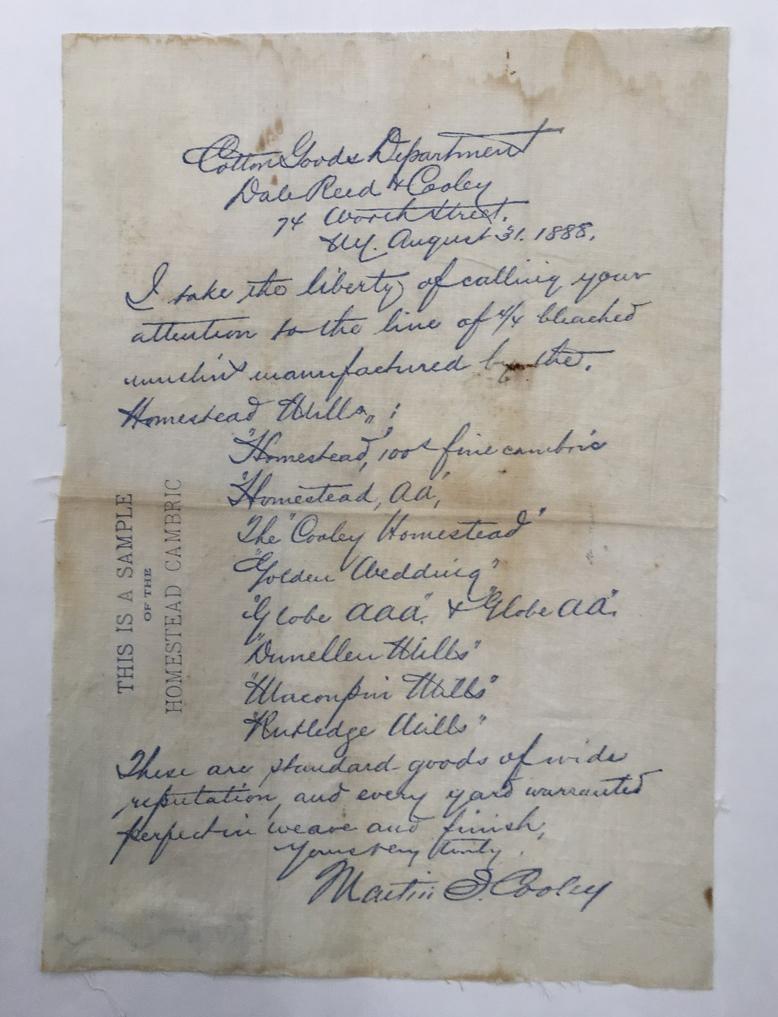 Cotton Goods Department
Dale Reed & Cooley
74 Worth Street.
N.Y. August 31. 1888.
I take the liberty of calling your
attention to the line of 4/4 bleached
muslins manufactured by the.
Homestead Mills,, :
"Homestead," 100s fine cambric
"Homestead, AA,"
The "Cooley Homestead"
"Golden Wedding"
"Globe AAA". & "Globe AA".
"Dunellen Mills"
"Macoupin Mills"
"Rutledge Mills"
These are standard goods of wide
reputation, and every yard warranted
perfect in weave and finish,
Yours very truly.
Martin J. Cooley
THIS IS A SAMPLE
OF THE
HOMESTEAD CAMBRIC